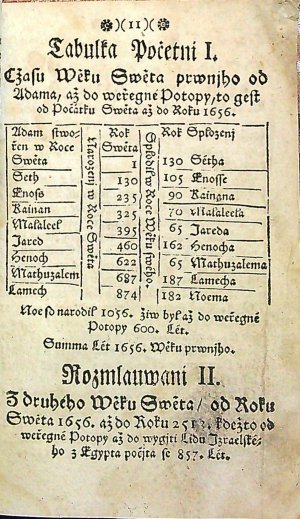 )(11)(
Tabulka Početnj I.
Cžasu Wěku Swěta prwnjho od
Adama, až do weřegné Potopy, to gest
od Počátku Swěta až do Roku 1656.
Adam stwo-
řen w Roce
Swěta
Seth
Enos
Kainan
Malaleel
Jared
Henoch
Mathuzalem
Lamech
Narozenj w Roce Swěta
Rok
Swěta
1
130
235
325
395
460
622
687
874
Splodil w Roce Wěku swého.
Rok Splozenj
130 Sétha
105 Enosse
90 Kaingna
70 Malaleela
65 Jareda
162 Henocha
65 Mathuzalema
187 Lamecha
182 Noema
Noe se narodil 1056. žiw byl až do weřegné
Potopy 600. Lét.
Summa Lét 1656. Wěku prwnjho.
Rozmlauwani II.
Z druheho Wěku Swěta / od Roku
Swěta 1656. až do Roku 2513. kdežto od
weřegné Potopy až do wygitj Lidu Izraelské-
ho z Egypta počjta se 857. Lét.